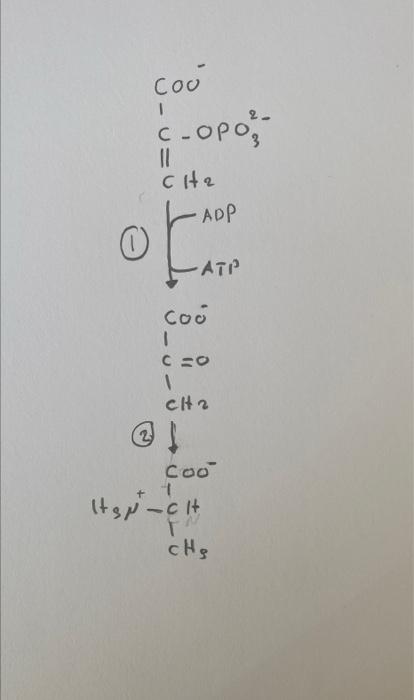 COO⁻
C - OPO₃²⁻
||
CH2
ADP
①
ATP
COO⁻
C = O
CH2
②
COO⁻
H3N⁺ - CH
CH3